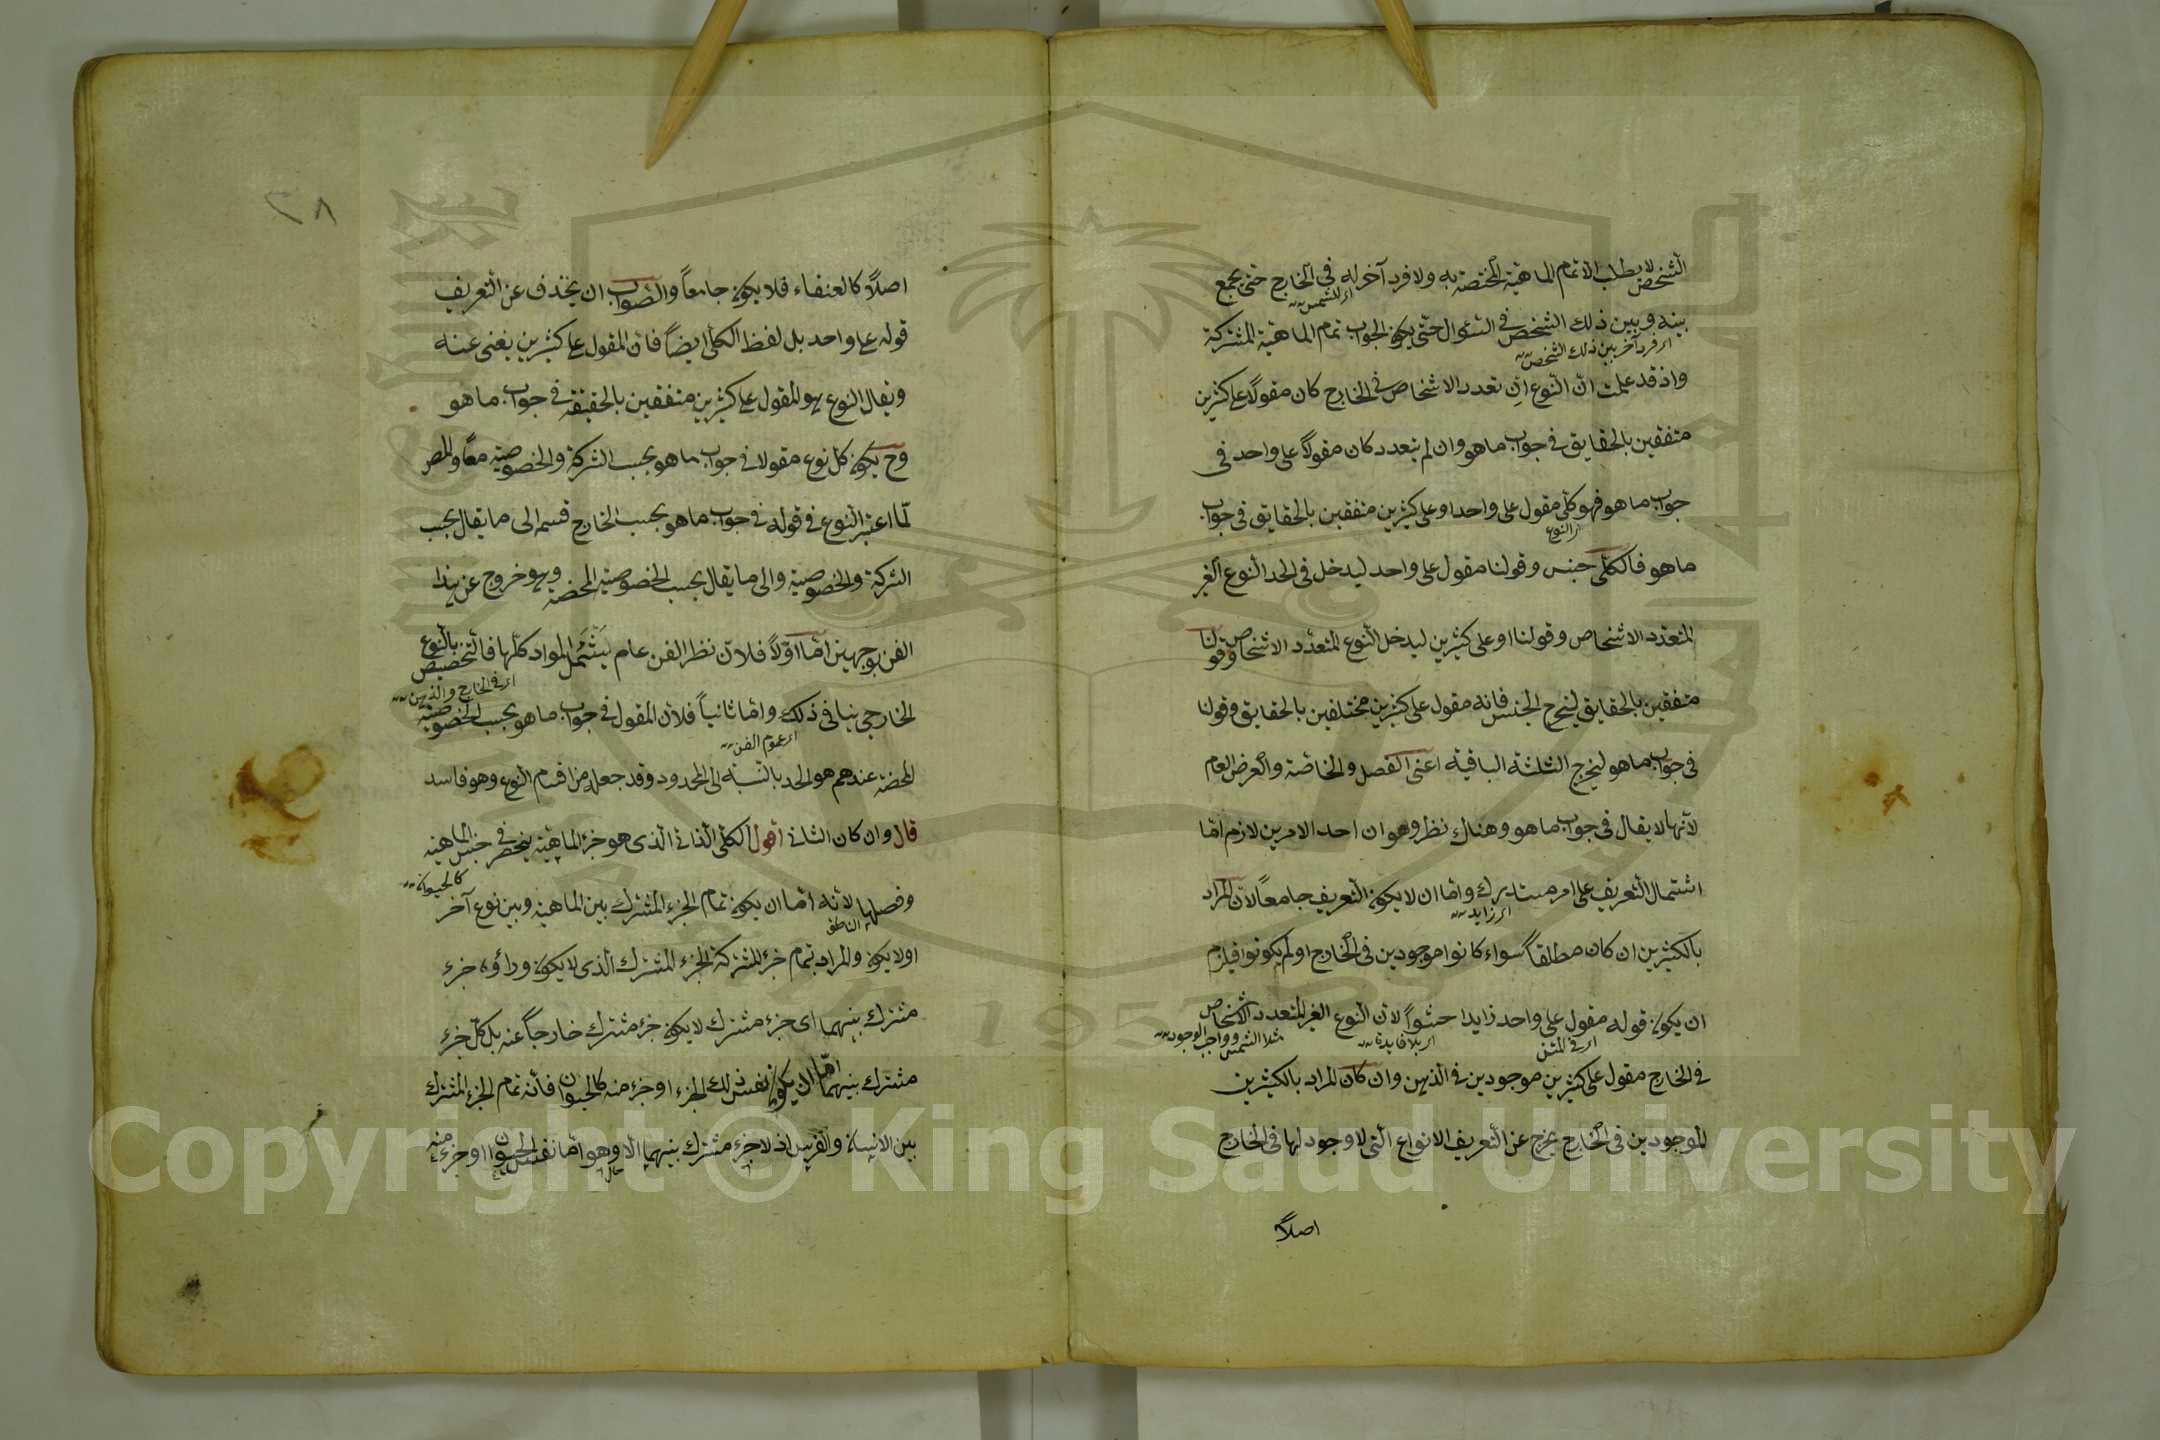 الشخص لا يطلب الا تمام الماهية المختصة به ولا فرد آخر له في الخارج حتى يجمع
اى للشمس
بينه وبين ذلك الشخص في السئوال حتى يكون الجواب تمام الماهية المشتركة
اى فرد آخر بين ذلك الشخص
واذ قد علمت انّ النوع ان تعدد الاشخاص في الخارج كان مقولاً على كثيرين
متفقين بالحقايق في جواب ما هو وان لم يتعدد كان مقولاً على واحد في
جواب ما هو فهو كلى مقول على واحد او على كثيرين متفقين بالحقايق في جواب
اى النوع
ما هو فالكلى جنس وقولنا مقول على واحد ليدخل في الحد النوع الغير
المتعدد الاشخاص وقولنا او على كثيرين ليدخل النوع المتعدد الاشخاص وقولنا
متفقين بالحقايق ليخرج الجنس فانه مقول على كثيرين مختلفين بالحقايق وقولنا
في جواب ما هو ليخرج الثلثة الباقية اعنى الفصل والخاصة والعرض العام
لانّها لا يقال في جواب ما هو وهناك نظر وهو ان احد الامرين لازم امّا
اشتمال التعريف على امر مستدرك وامّا ان لا يكون التعريف جامعاً لان المراد
اى زايد
بالكثيرين ان كان مطلقاً سواء كانوا موجودين في الخارج او لم يكونوا فيلزم
ان يكون قوله مقول على واحد زايدا حشواً لان النوع الغير المتعدد الاشخاص
اى في المتن
اى بلا فايدة
مثلا الشمس وواجب الوجود
في الخارج مقول على كثيرين موجودين في الذهن وان كان المراد بالكثيرين
الموجودين في الخارج يخرج عن التعريف الانواع التى لا وجود لها في الخارج
اصلاً
٣٨
اصلاً كالعنقاء فلا يكون جامعاً والصواب ان يحذف عن التعريف
قوله على واحد بل لفظ الكلى ايضاً فان المقول على كثيرين يغنى عنه
ويقال النوع هو المقول على كثيرين متفقين بالحقيقة في جواب ما هو
وح يكون كل نوع مقولا في جواب ما هو بحسب الشركة والخصوصية معاً والمصر
لمّا اعتبر النوع في قوله في جواب ما هو بحسب الخارج قسمه الى ما يقال بحسب
الشركة والخصوصية والى ما يقال بحسب الخصوصية المحضة وهو خروج عن هذا
الفن بوجهين امّا اوّلاً فلانّ نظر الفن عام يشمل المواد كلّها فالتخصيص بالنوع
اى في الخارج والذهن
الخارجي ينافى ذلك وامّا ثانياً فلان المقول في جواب ما هو بحسب الخصوصية
اى عموم الفن
المحضة عندهم هو الحد بالنسبة الى المحدود وقد جعله من اقسام النوع وهو فاسد
قال وان كان الثانى اقول الكلّى الذاتى الذى هو جزء الماهية ينحصر في جنس الماهية
كالحيوان
وفصلها لانّه امّا ان يكون تمام الجزء المشترك بين الماهية وبين نوع آخر
الناطق
او لا يكون والمراد بتمام جزء المشترك الجزء المشترك الذى لا يكون وراؤه جزء
مشترك بينهما اى جزء مشترك لا يكون جزء مشترك خارجاً عنه بل كلّ جزء
مشترك بينهما امّا ان يكون نفس ذلك الجزء او جزء منه كالحيوان فانّه تمام الجزء المشترك
بين الانسان والفرس اذ لا جزء مشترك بينهما الّا وهو امّا نفس الحيوان او جزء منه